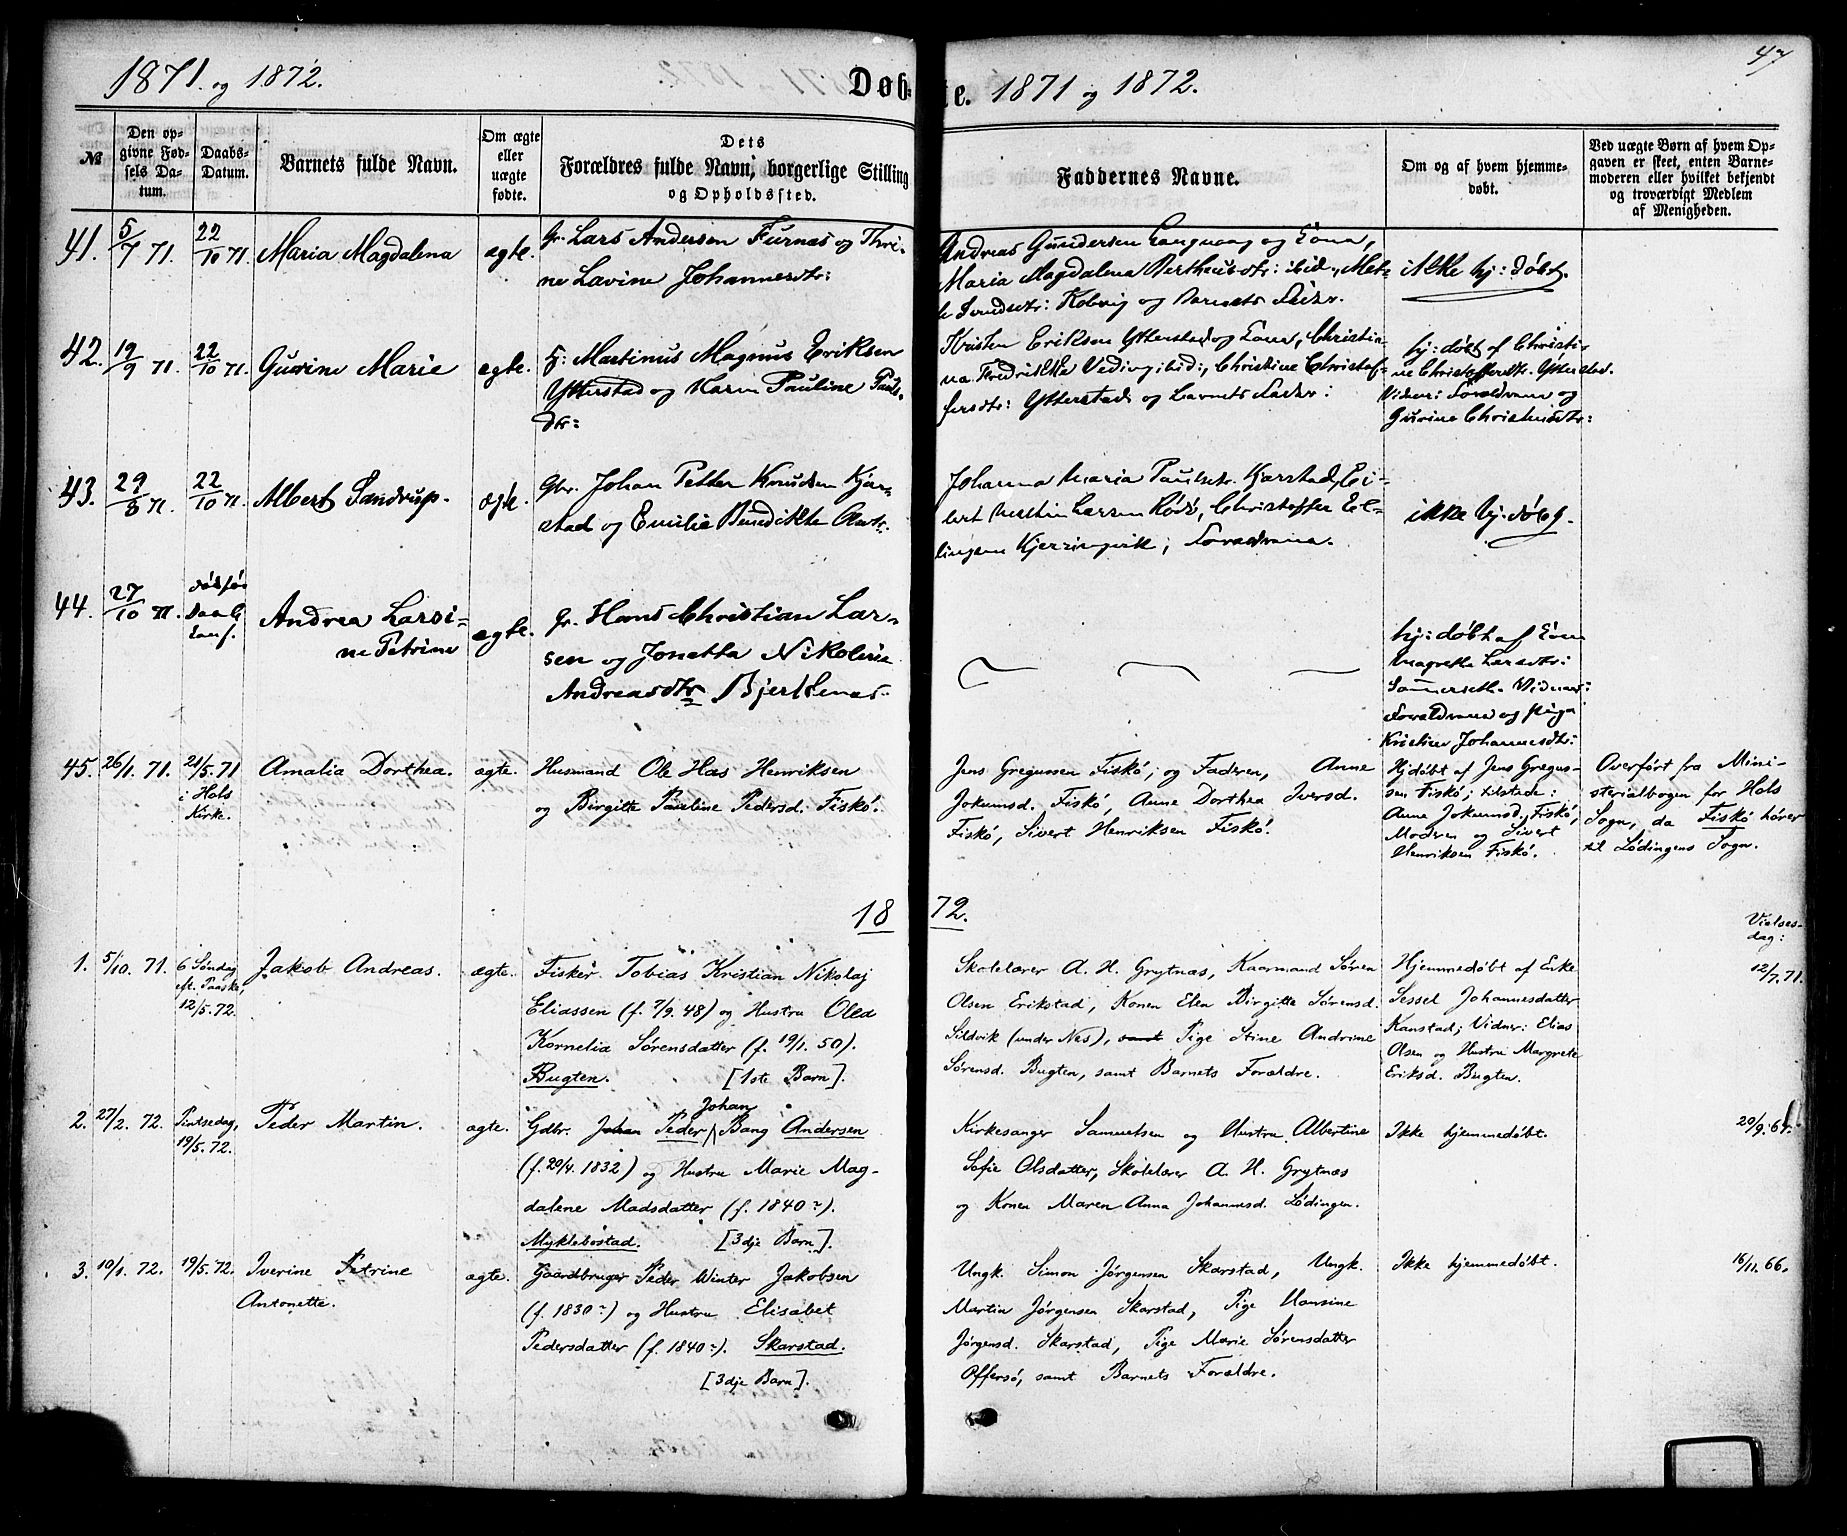 1871. og 1872.
Døb-
te. 1871 og 1872.
47
№
Den op-
givne Fød-
sels Da-
tum.
Daabs-
Datum.
Barnets fulde Navn.
Om ægte
eller
uægte
fødte.
Dets
Forældres fulde Navn, borgerlige Stilling
og Opholdssted.
Faddernes Navne.
Om og af hvem hjemme-
døbt.
Ved uægte Børn af hvem Op-
gaven er skeet, enten Barne-
moderen eller hvilket bekjendt
og troværdigt Medlem
af Menigheden.
41. 5/7 71. 22/10 71. Maria Magdalena ægte. Gr. Lars Andersen Furnæs og Thri-
ne Lavine Johannesdtr:
Andreas Gundersen og Kona,
Maria Magdalena ibid., Met-
te og Barnets Fader.
ikke hj: døbt.
42. 19/9 71. 22/10 71. Gurine Marie ægte. F: Martinus Magnus Eriksen
Ytterstad og Karen Pauline Pauls-
dtr:
Kristen Eriksen Ytterstad og Kona, Christia-
na Fredrikke Veding ibid:, Christine Christof-
fersdtr: Ytterstad og Barnets Fader:
hj: døbt af Christi-
ne Christoffersdtr. Ytterstad.
Vidner: Forældrene og
Gurine Christensdtr:
43. 29/8 71. 22/10 71. Albert Sandrup. ægte. Gbr. Johan Petter Knudsen Kjær-
stad og Emilie Benedikte
Johanna Maria Paulsdtr. Kjærstad, Ei-
lert Larsen Rødø, Christoffer El-
lingsen Kjerringvik, Forældrene.
ikke hj. døbt.
44. 27/10 71. Andrea Larsi-
ne Petrine
ægte. Gr. Hans Christian Lar-
sen og Jonetta Nikoline
Andreasdtr
hj: døbt af Kona
Magrethe Larsdtr:
Sommerseth. Vidner:
Forældrene og Pige
Kristine Johannesdtr:
45. 26/1. 71. 21/5. 71
i Hols
Kirke.
Amalia Dorthea. ægte. Husmand Ole Has Henriksen
og Birgitte Pauline Pedersd. Fiskø.
Jens Gregussen Fiskø, og Faderen, Anne
Jokumsd. Fiskø, Anne Dorthea Iversd.
Fiskø, Sivert Henriksen Fiskø.
Hjdøbt af Jens Gregus-
sen Fiskø; tilstede:
Anne Jokumsd. Fiskø,
Moderen og Sivert
Henriksen Fiskø.
Overført fra Mini-
sterialbogen for Hols
Sogn, da Fiskø hører
til Lødingens Sogn.
1872.
Vielses-
dag:
1. 5/10. 71. 6 Søndag
eft. Paaske,
12/5. 72.
Jakob Andreas. ægte. Fisker Tobias Kristian Nikolaj
Eliassen (f. 7/9. 48) og Hustru Olea
Kornelia Sørensdatter (f. 19/1. 50).
Bugten. [1ste Barn].
Skolelærer A. H. Grytnæs, Kaarmand Søren
Olsen Erikstad, Konen Elen Birgitte Sørensd.
Sildvik (under Næs), samt Pige Stine Andrine
Sørensd. Bugten, samt Barnets Forældre.
Hjemmedøbt af Enke
Sessel Johannesdatter
Kanstad; Vidner: Elias
Olsen og Hustru Margrete
Eriksd. Bugten.
12/7. 71.
2. 27/2. 72. Pintsedag,
19/5. 72.
Peder Martin. ægte. Gdbr. Johan Peder Johan Bang Andersen
(f. 29/4. 1832) og Hustru Marie Mag-
dalene Madsdatter (f. 1840?).
Myklebostad. [3dje Barn].
Kirkesanger Samuelsen og Hustru Albertine
Sofie Olsdatter, Skolelærer A. H. Grytnæs
og Konen Maren Anna Johannesd. Lødingen.
Ikke hjemmedøbt.
3. 19/1. 72. 19/5. 72. Iverine Petrine
Antonette.
ægte. Gaardbruger Peder Winter Jakobsen
(f. 1830?) og Hustru Elisabet
Pedersdatter (f. 1840?). Skarstad.
[3dje Barn].
Ungk. Simon Jørgensen Skarstad, Ungk.
Martin Jørgensen Skarstad, Pige Hansine
Jørgensd. Skarstad, Pige Marie Sørensdatter
Offersø, samt Barnets Forældre.
Ikke hjemmedøbt.
16/11. 66.